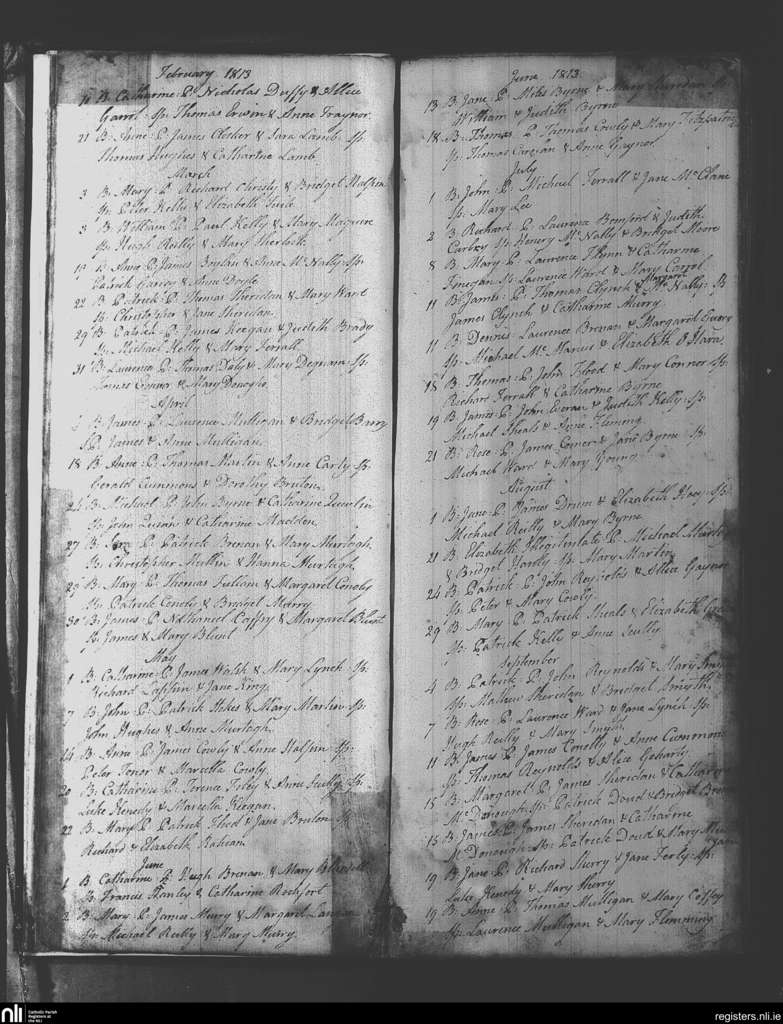 February 1813
11 B. Catharine: P. Nicholas Duffy & Allice
Garrel: Sp: Thomas Erwin & Anne Traynor
21 B. Anne: P: James Clesker & Sara Lamb: Sp:
Thomas Hughes & Catharine Lamb
March
3 B. Mary: P. Richard Christy & Bridget Halpin
Sp: Peter Kelly & Elizabeth
3 B. William P: Paul Kelly & Mary Maguire
Sp: Hugh Reilly & Mary Sherlock
B. James Boylan & Anne McNally: Sp:
Patrick Harvy & Anne Doyle
22 B. Patrick: P: Thomas Sheridan & Mary Ward
Sp: Christopher & Jane Sheridan
29 B. Patrick: P: James Keegan & Judith Brady
Sp: Michael Kelly & Mary Ferrall
31 B: Laurence P: Thomas Daly & Mary Degnam: Sp:
Thomas & Mary
April
B: James: P: Laurence Mulligan & Bridget Barry
Sp: James & Anne Mulligan
18 B. Anne: P: Thomas Martin & Anne Carly Sp:
Gerald Cummons & Dorothy Bruton
24 B: Michael P: John Byrne & Catharine
Sp: John & Catharine Madden
27 B: Sara P: Patrick Brenan & Mary Murtagh
Sp: Christopher Mullin & Hanna Murtagh
29 B. Mary P: Thomas Fullam & Margaret Conoly
Sp: Patrick Conoly & Bridget Murry
30 B: James P: Nathaniel Caffry & Margaret Bluit
Sp: James & Mary Bluit
May
1 B: Catharine P: James Walsh & Mary Lynch Sp:
Richard & Jane King
7 B: John P: Patrick & Mary Martin Sp:
John Hughes & Anne Murtagh
14 B: Anne P: James Cowly & Anne Halpin Sp:
Peter Conor & Marcella Cowly
20 B. Catharine P: Terence Foley & Anne Scully Sp:
Luke Kenedy & Marcella Keegan
22 B. Mary P: Patrick & Jane Bruton Sp:
Richard & Elizabeth
June
1 B Catharine P: Hugh Brenan & Mary
Sp: Francis Hanley & Catharine Rochfort
2 B. Mary P: James Murry & Margaret
Sp: Michael Reilly & Mary Murry
June 1813
13 B: Jane: P: Miles Byrne & Mary Sheridan Sp:
William & Judith Byrne
18 B: Thomas: P: Thomas Cowly & Mary
Sp: Thomas & Anne Gaynor
July
1 B: John: P: Michael Ferrall & Jane
Sp: Mary Lee
2 B: Richard: P: Laurence Bomford & Judith
Sp: Henry McNally & Bridget Moore
8 B: Mary P: Laurence Flynn & Catharine
Finegan Sp: Laurence Ward & Mary Carrol
11 B: James: P: Thomas Clynch & Margaret McNally: Sp
James Clynch & Catharine Murry
11 B: Dennis: Laurence Brenan & Margaret
Sp: Michael McManus & Elizabeth O Hara
18 B: Thomas: P: John Flood & Mary Connor Sp:
Richard Ferrall & Catharine Byrne
19 B: James: P: John & Judith Kelly: Sp:
Michael Sheals & Anne Fleming
21 B: Rose: P: James Comer & Jane Byrne Sp:
Michael Ward & Mary Young
August
1 B: Jane: P: James Drum & Elizabeth Hoey Sp:
Michael Reilly & Mary Byrne
21 B: Elizabeth Illegitimate P: Michael
& Bridget Hanly Sp: Mary Martin
24 B: Patrick: P: John Reynolds & Allice Gaynor
Sp: Peter & Mary Cowly
29 B: Mary P: Patrick Sheals & Elizabeth
Sp: Patrick Kelly & Anne Scully
September
4 B: Patrick: P: John Reynolds & Mary
Sp: Mathew Sheridan & Bridget Smyth
7 B: Rose: P: Laurence Ward & Jane Lynch Sp:
Hugh Reilly & Mary Smyth
11 B: James: P: James Conolly & Anne
Sp: Thomas Reynolds & Alice
15 B: Margaret: P: James Sheridan & Catharine
McDonough: Sp: Patrick Doud & Bridget
15 B: James: P: James Sheridan & Catharine
McDonough: Sp: Patrick Doud & Mary
19 B: Jane: P: Richard Murry & Jane Ferly: Sp:
Luke Kenedy & Mary Murry
19 B: Anne: P: Thomas Mulligan & Mary Coffey
Sp: Laurence Mulligan & Mary Flemming
nli Catholic Parish
Registers at
the NLI
registers.nli.ie